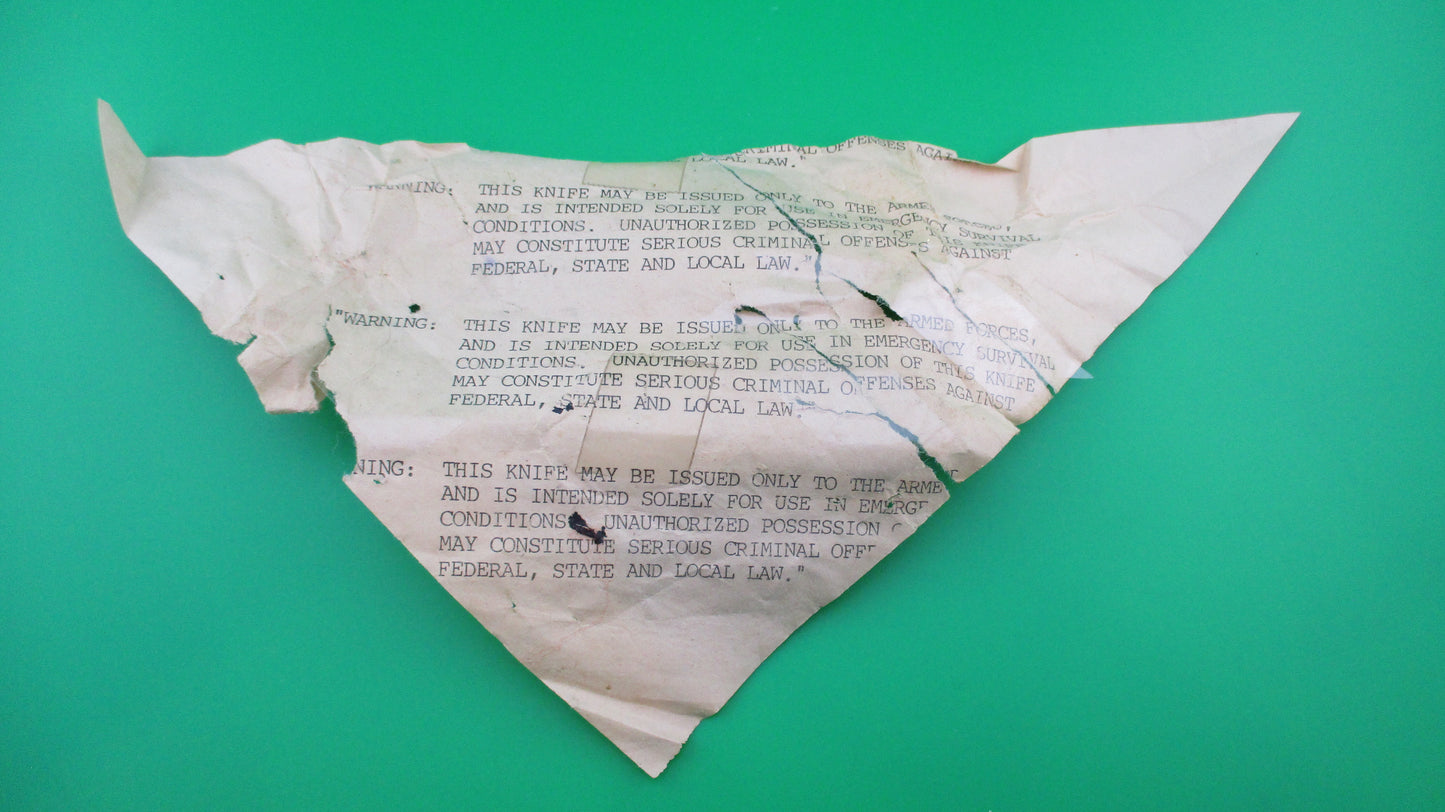 CRIMINAL OFFENSES AGAI
LOCAL LAW."
WARNING: THIS KNIFE MAY BE ISSUED ONLY TO THE ARME
AND IS INTENDED SOLELY FOR USE IN EMERGENCY SURVIVAL
CONDITIONS. UNAUTHORIZED POSSESSION OF
MAY CONSTITUTE SERIOUS CRIMINAL OFFENSES AGAINST
FEDERAL, STATE AND LOCAL LAW."
"WARNING: THIS KNIFE MAY BE ISSUED ONLY TO THE ARMED FORCES,
AND IS INTENDED SOLELY FOR USE IN EMERGENCY SURVIVAL
CONDITIONS. UNAUTHORIZED POSSESSION OF THIS KNIFE
MAY CONSTITUTE SERIOUS CRIMINAL OFFENSES AGAINST
FEDERAL, STATE AND LOCAL LAW."
NING: THIS KNIFE MAY BE ISSUED ONLY TO THE ARME
AND IS INTENDED SOLELY FOR USE IN EMERGE
CONDITIONS UNAUTHORIZED POSSESSION
MAY CONSTITUTE SERIOUS CRIMINAL OFF
FEDERAL, STATE AND LOCAL LAW."